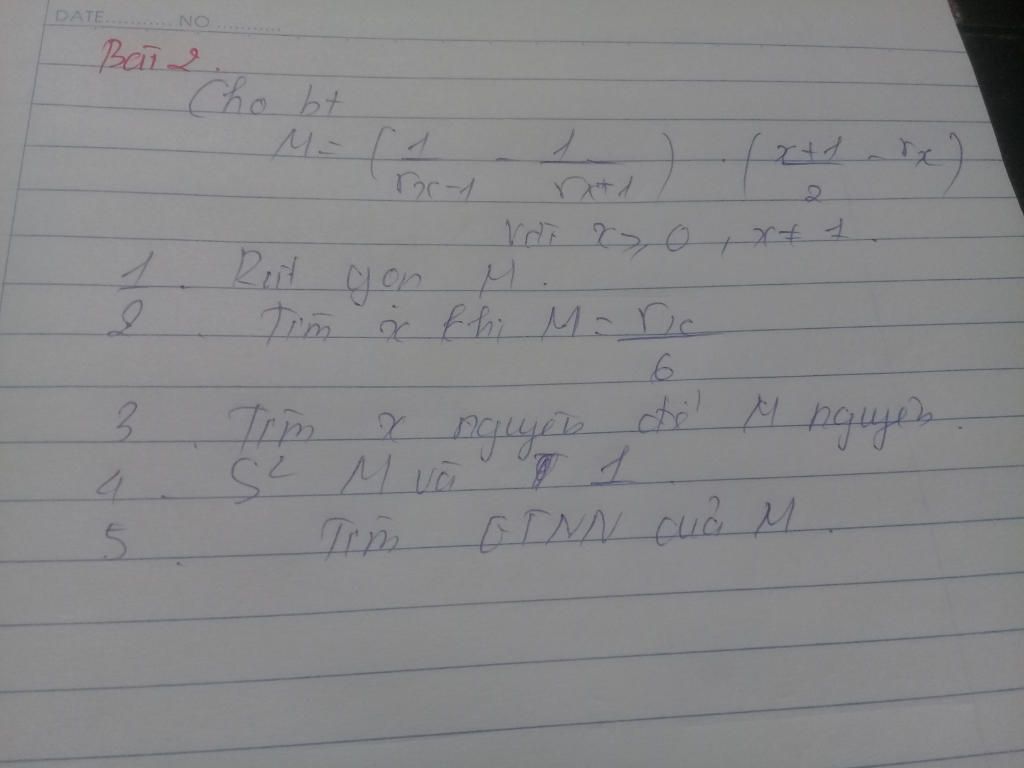 DATE............ NO ............
Bài 2.
Cho bt
M = (1/(√x-1) - 1/(√x+1)) . ((x+1)/2 - √x)
Với x ≥ 0 , x ≠ 1.
1. Rút gọn M.
2. Tìm x khi M = √x/6
3. Tìm x nguyên để M nguyên.
4. S² M và 1
5. Tìm GTNN của M.